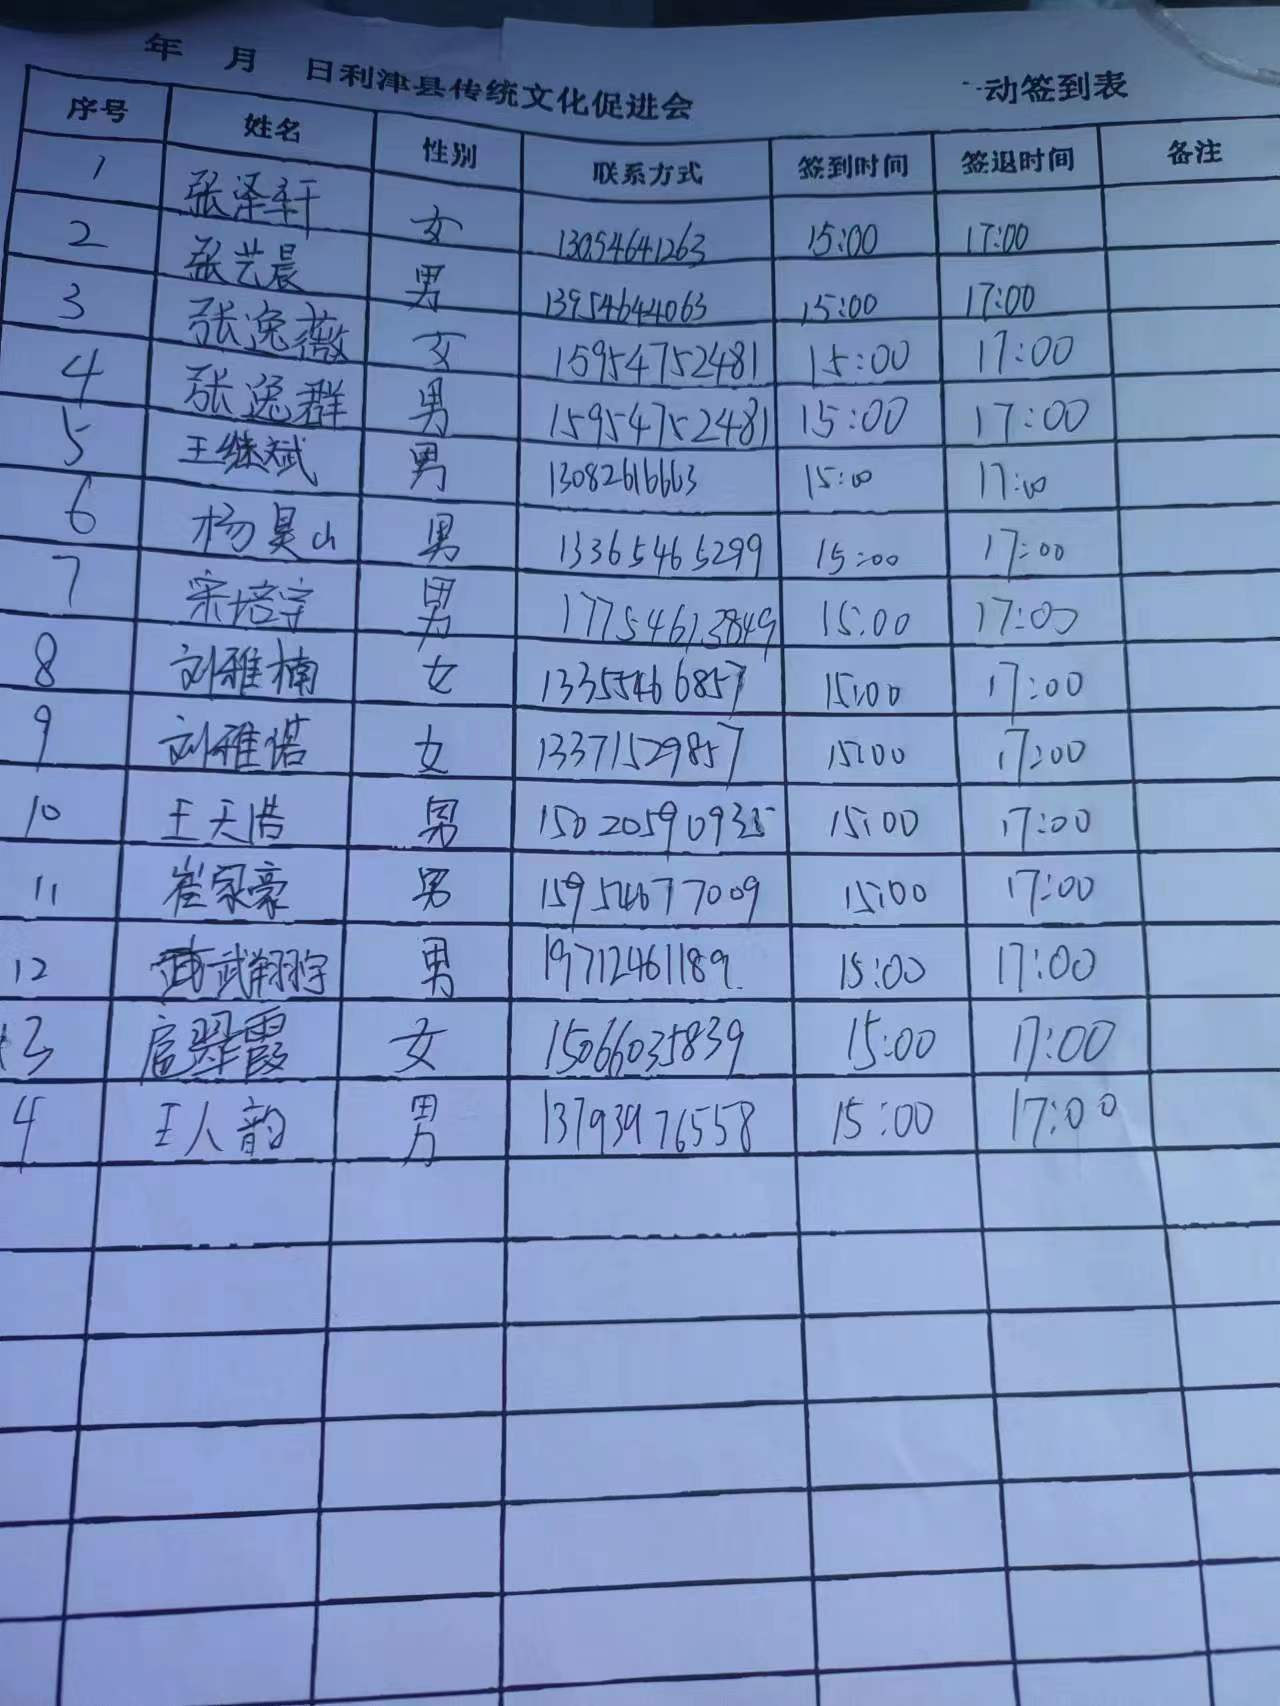 年 月 日利津县传统文化促进会 动签到表
序号 姓名 性别 联系方式 签到时间 签退时间 备注
1 张泽轩 女 13054641263 15:00 17:00
2 张艺晨 男 13954644063 15:00 17:00
3 张逸薇 女 15954752481 15:00 17:00
4 张逸群 男 15954752481 15:00 17:00
5 王继斌 男 13082616663 15:00 17:00
6 杨昊山 男 13365465299 15:00 17:00
7 宋培宇 男 17754613849 15:00 17:00
8 刘雅楠 女 13355466857 15:00 17:00
9 刘雅诺 女 13371529857 15:00 17:00
10 王天浩 男 15020590935 15:00 17:00
11 崔家豪 男 15954677009 15:00 17:00
12 武翔宇 男 19712461189. 15:00 17:00
13 扈翠霞 女 15066035839 15:00 17:00
4 王人韵 男 13793976558 15:00 17:00